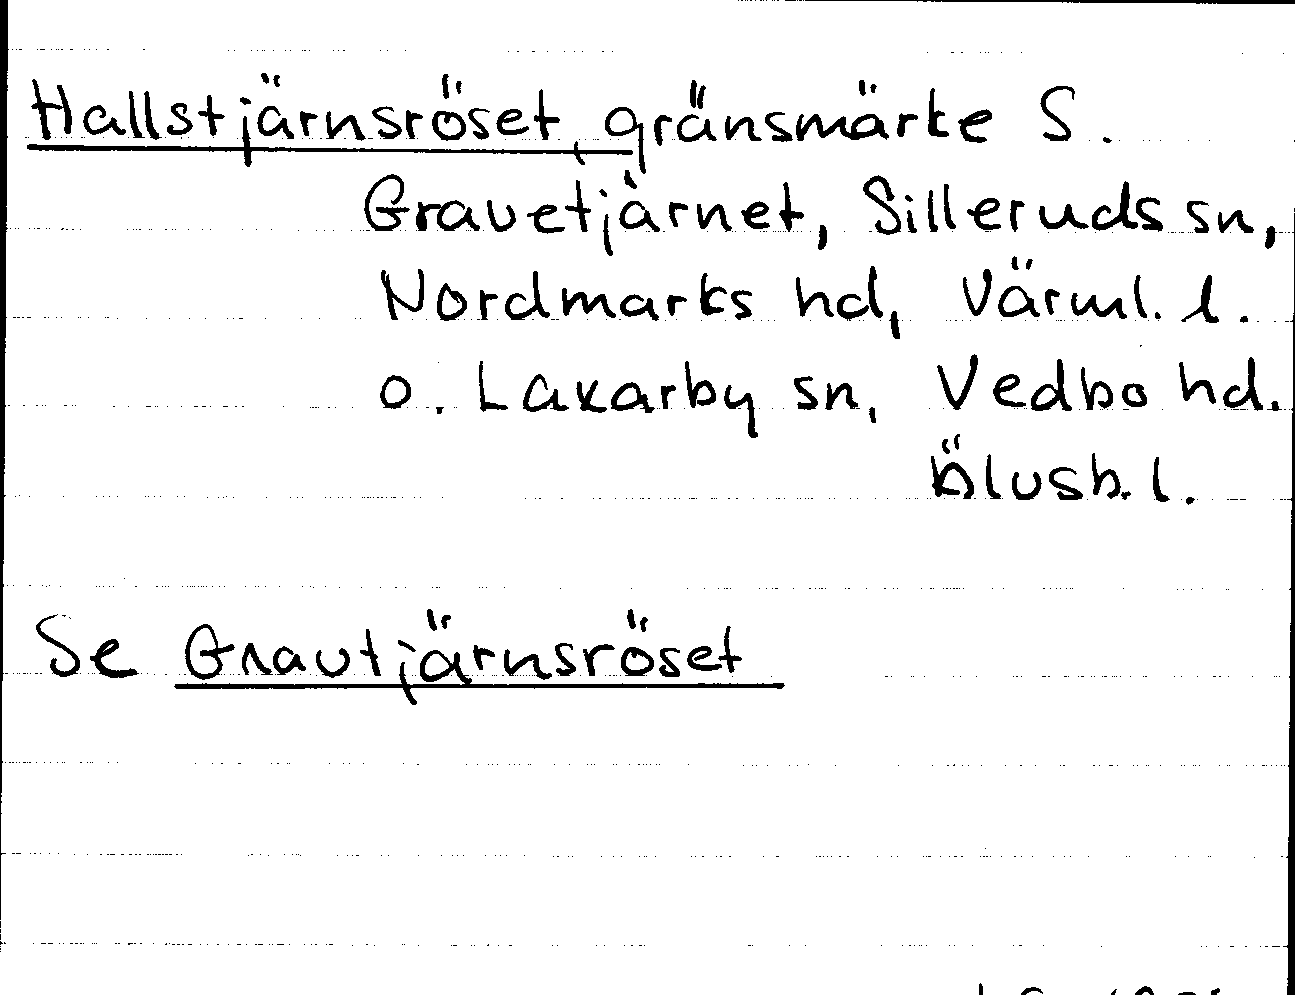 Hallstjärnsröset, gränsmärke S.
Gravetjärnet, Silleruds sn,
Nordmarks hd, Värml. l.
o. Laxarby sn, Vedbo hd.
Älvsb. l.
Se Gravtjärnsröset